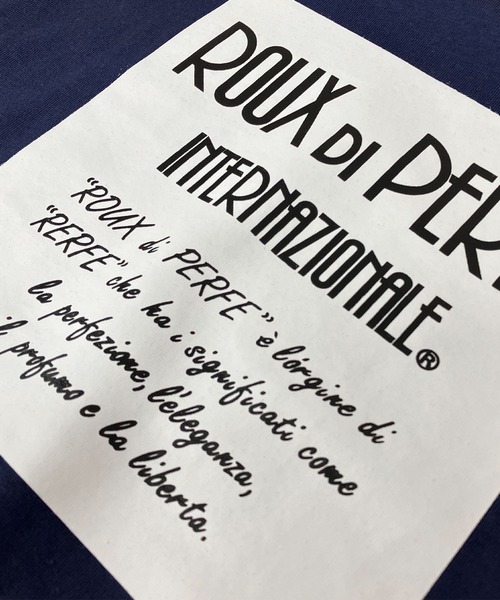 ROUX DI PER
INTERNAZIONALE®
"ROUX di PERFE" è l'orgine di
"RERFE" che ha i significati come
la perfezione, l'eleganza,
il profumo e la liberta.